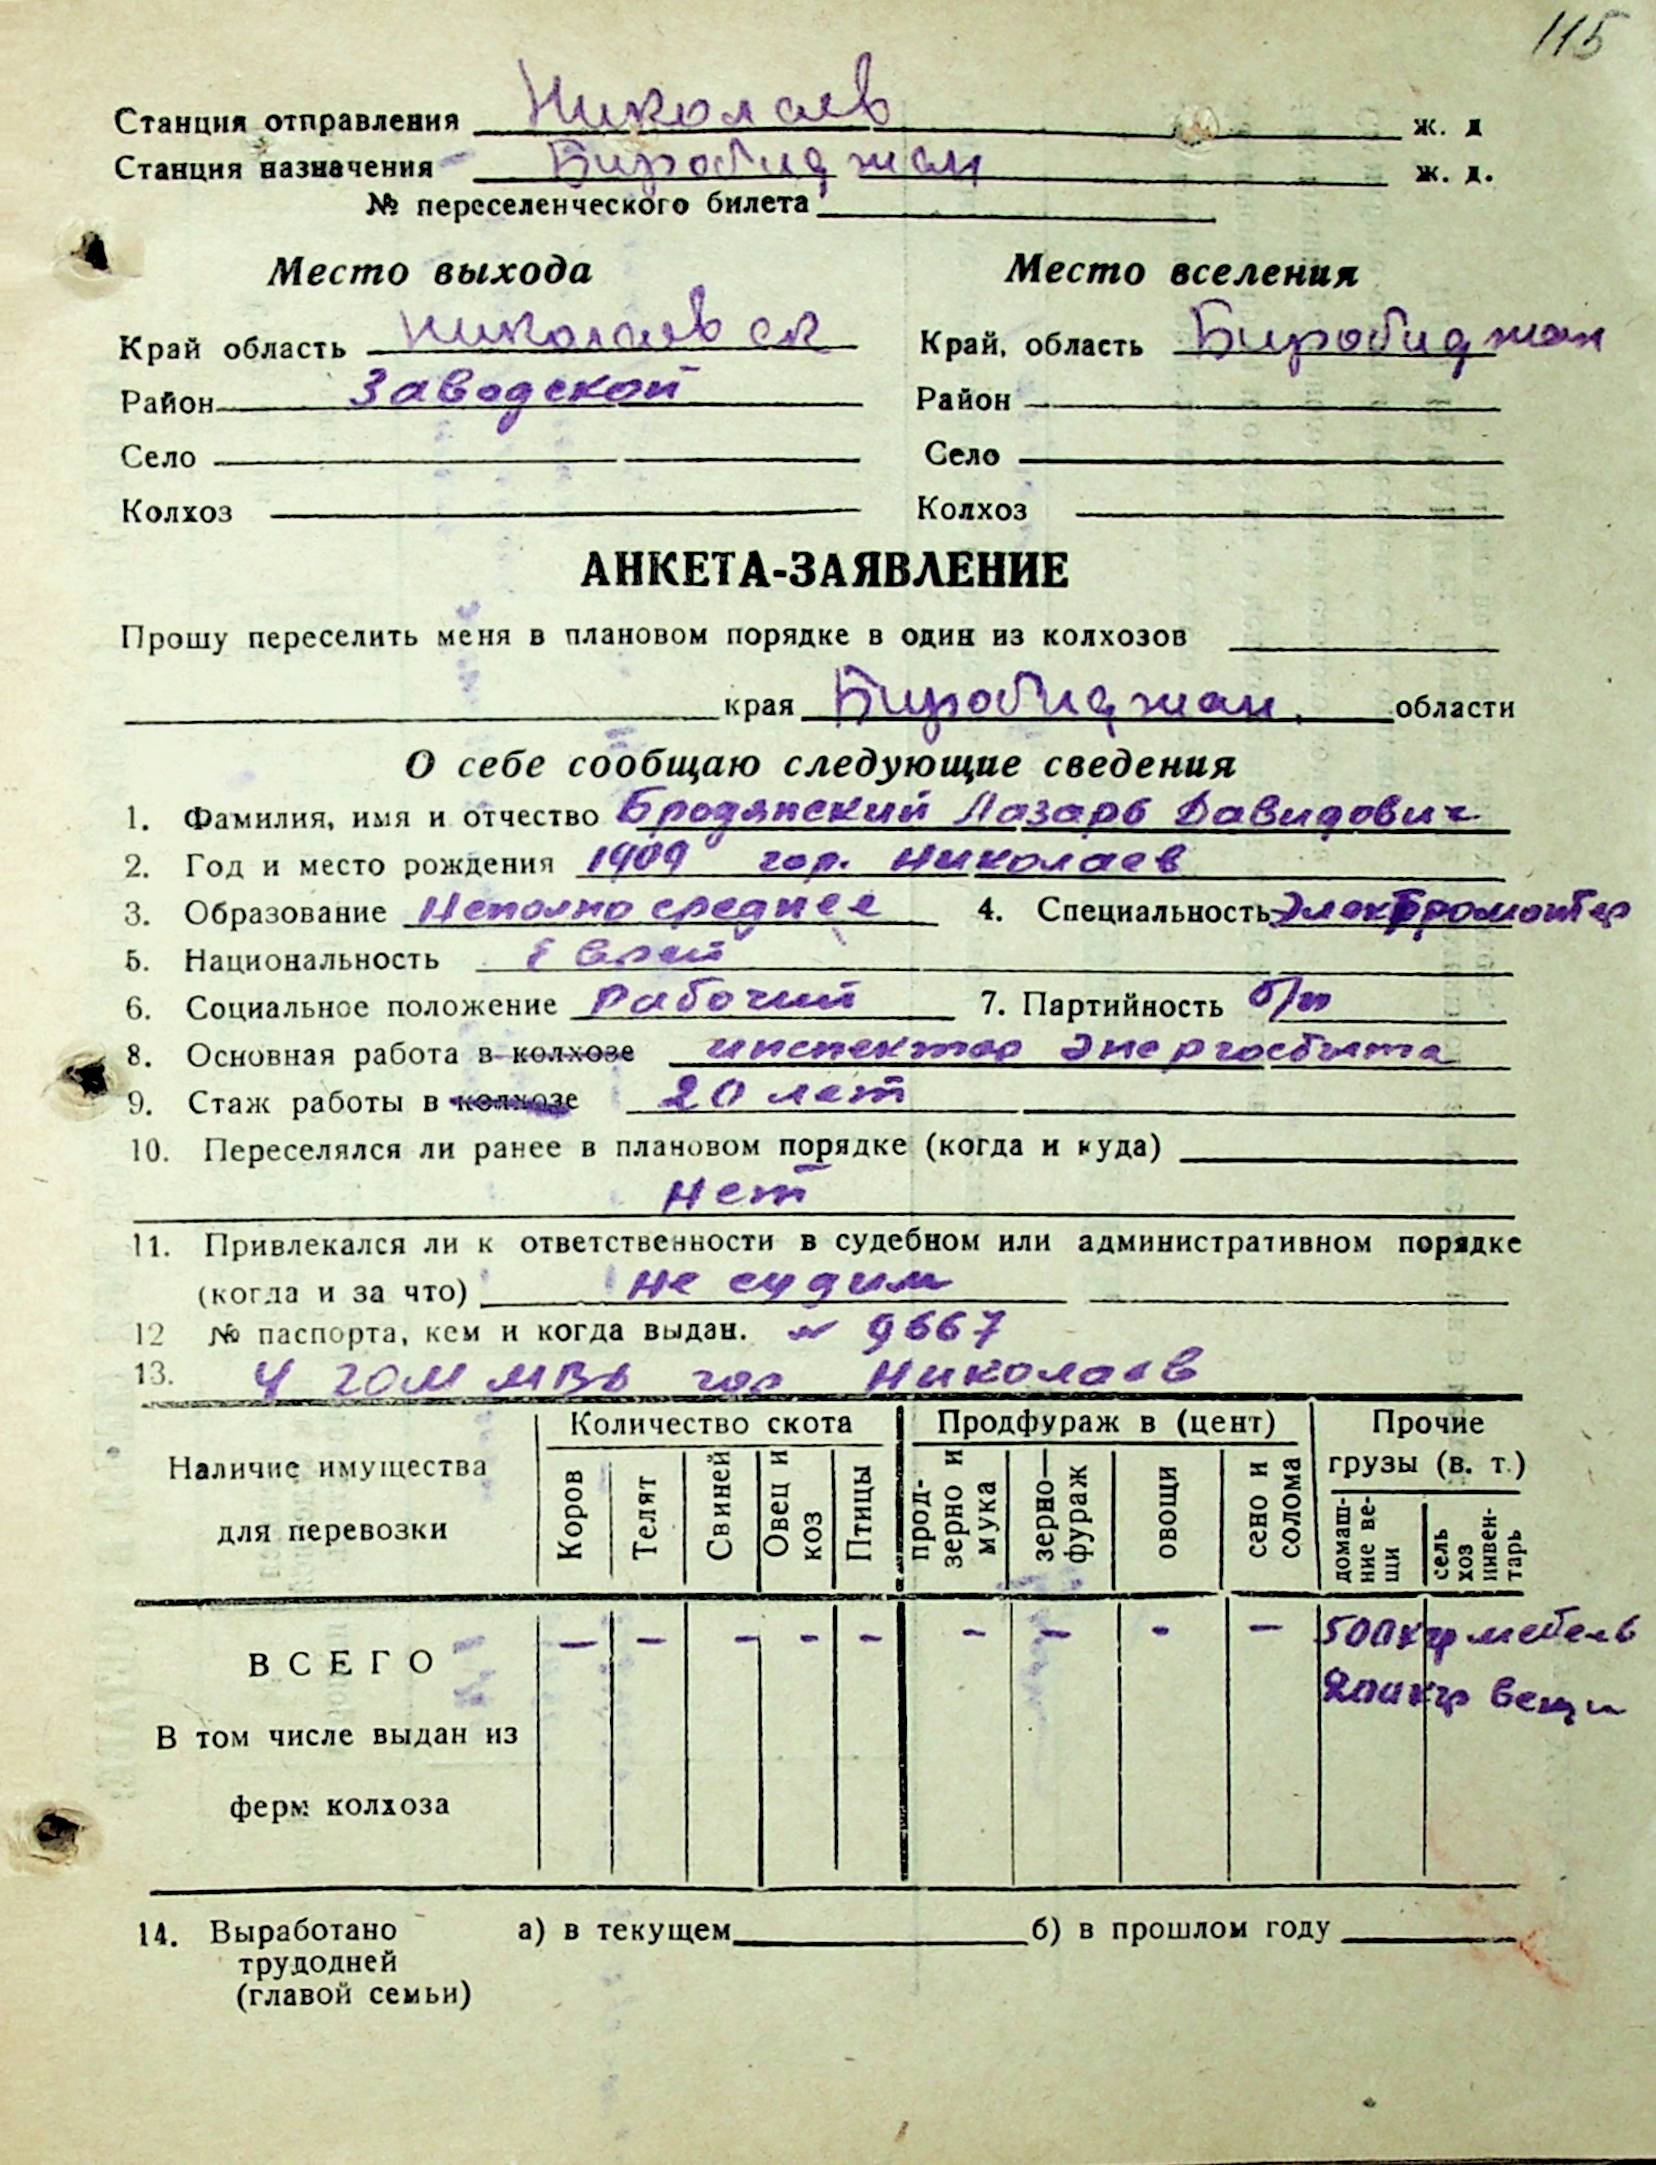 115
Станция отправления Николаев ж. д
Станция назначения Биробиджан ж. д.
№ переселенческого билета
Место выхода Место вселения
Край область Николаевск Край, область Биробиджан
Район Заводской Район
Село Село
Колхоз Колхоз
АНКЕТА-ЗАЯВЛЕНИЕ
Прошу переселить меня в плановом порядке в один из колхозов
края Биробиджан. области
О себе сообщаю следующие сведения
1. Фамилия, имя и отчество Бродянский Лазарь Давидович
2. Год и место рождения 1909 гор. Николаев
3. Образование Неполно среднее 4. Специальность Электромонтер
5. Национальность Еврей
6. Социальное положение Рабочий 7. Партийность б/п
8. Основная работа в колхозе инспектор Энергосбыта
9. Стаж работы в колхозе 20 лет
10. Переселялся ли ранее в плановом порядке (когда и куда)
Нет
11. Привлекался ли к ответственности в судебном или административном порядке
(когда и за что) не судим
12 № паспорта, кем и когда выдан. № 9667
13. 4 ГОМ МВД гор Николаев
Наличие имущества для перевозки
Количество скота Продфураж в (цент) Прочие грузы (в. т.)
Коров Телят Свиней Овец и коз Птицы прод-зерно и мука зерно—фураж овощи сено и солома домаш-ние ве-щи сель хоз инвен-тарь
ВСЕГО — — — — — — — — — 500 кгр мебель
200 кгр вещи
В том числе выдан из
ферм колхоза
14. Выработано а) в текущем б) в прошлом году
трудодней
(главой семьи)